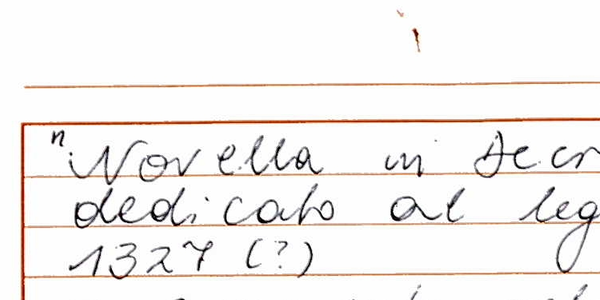 "Novella in Decr
dedicato al leg
1327 (?)